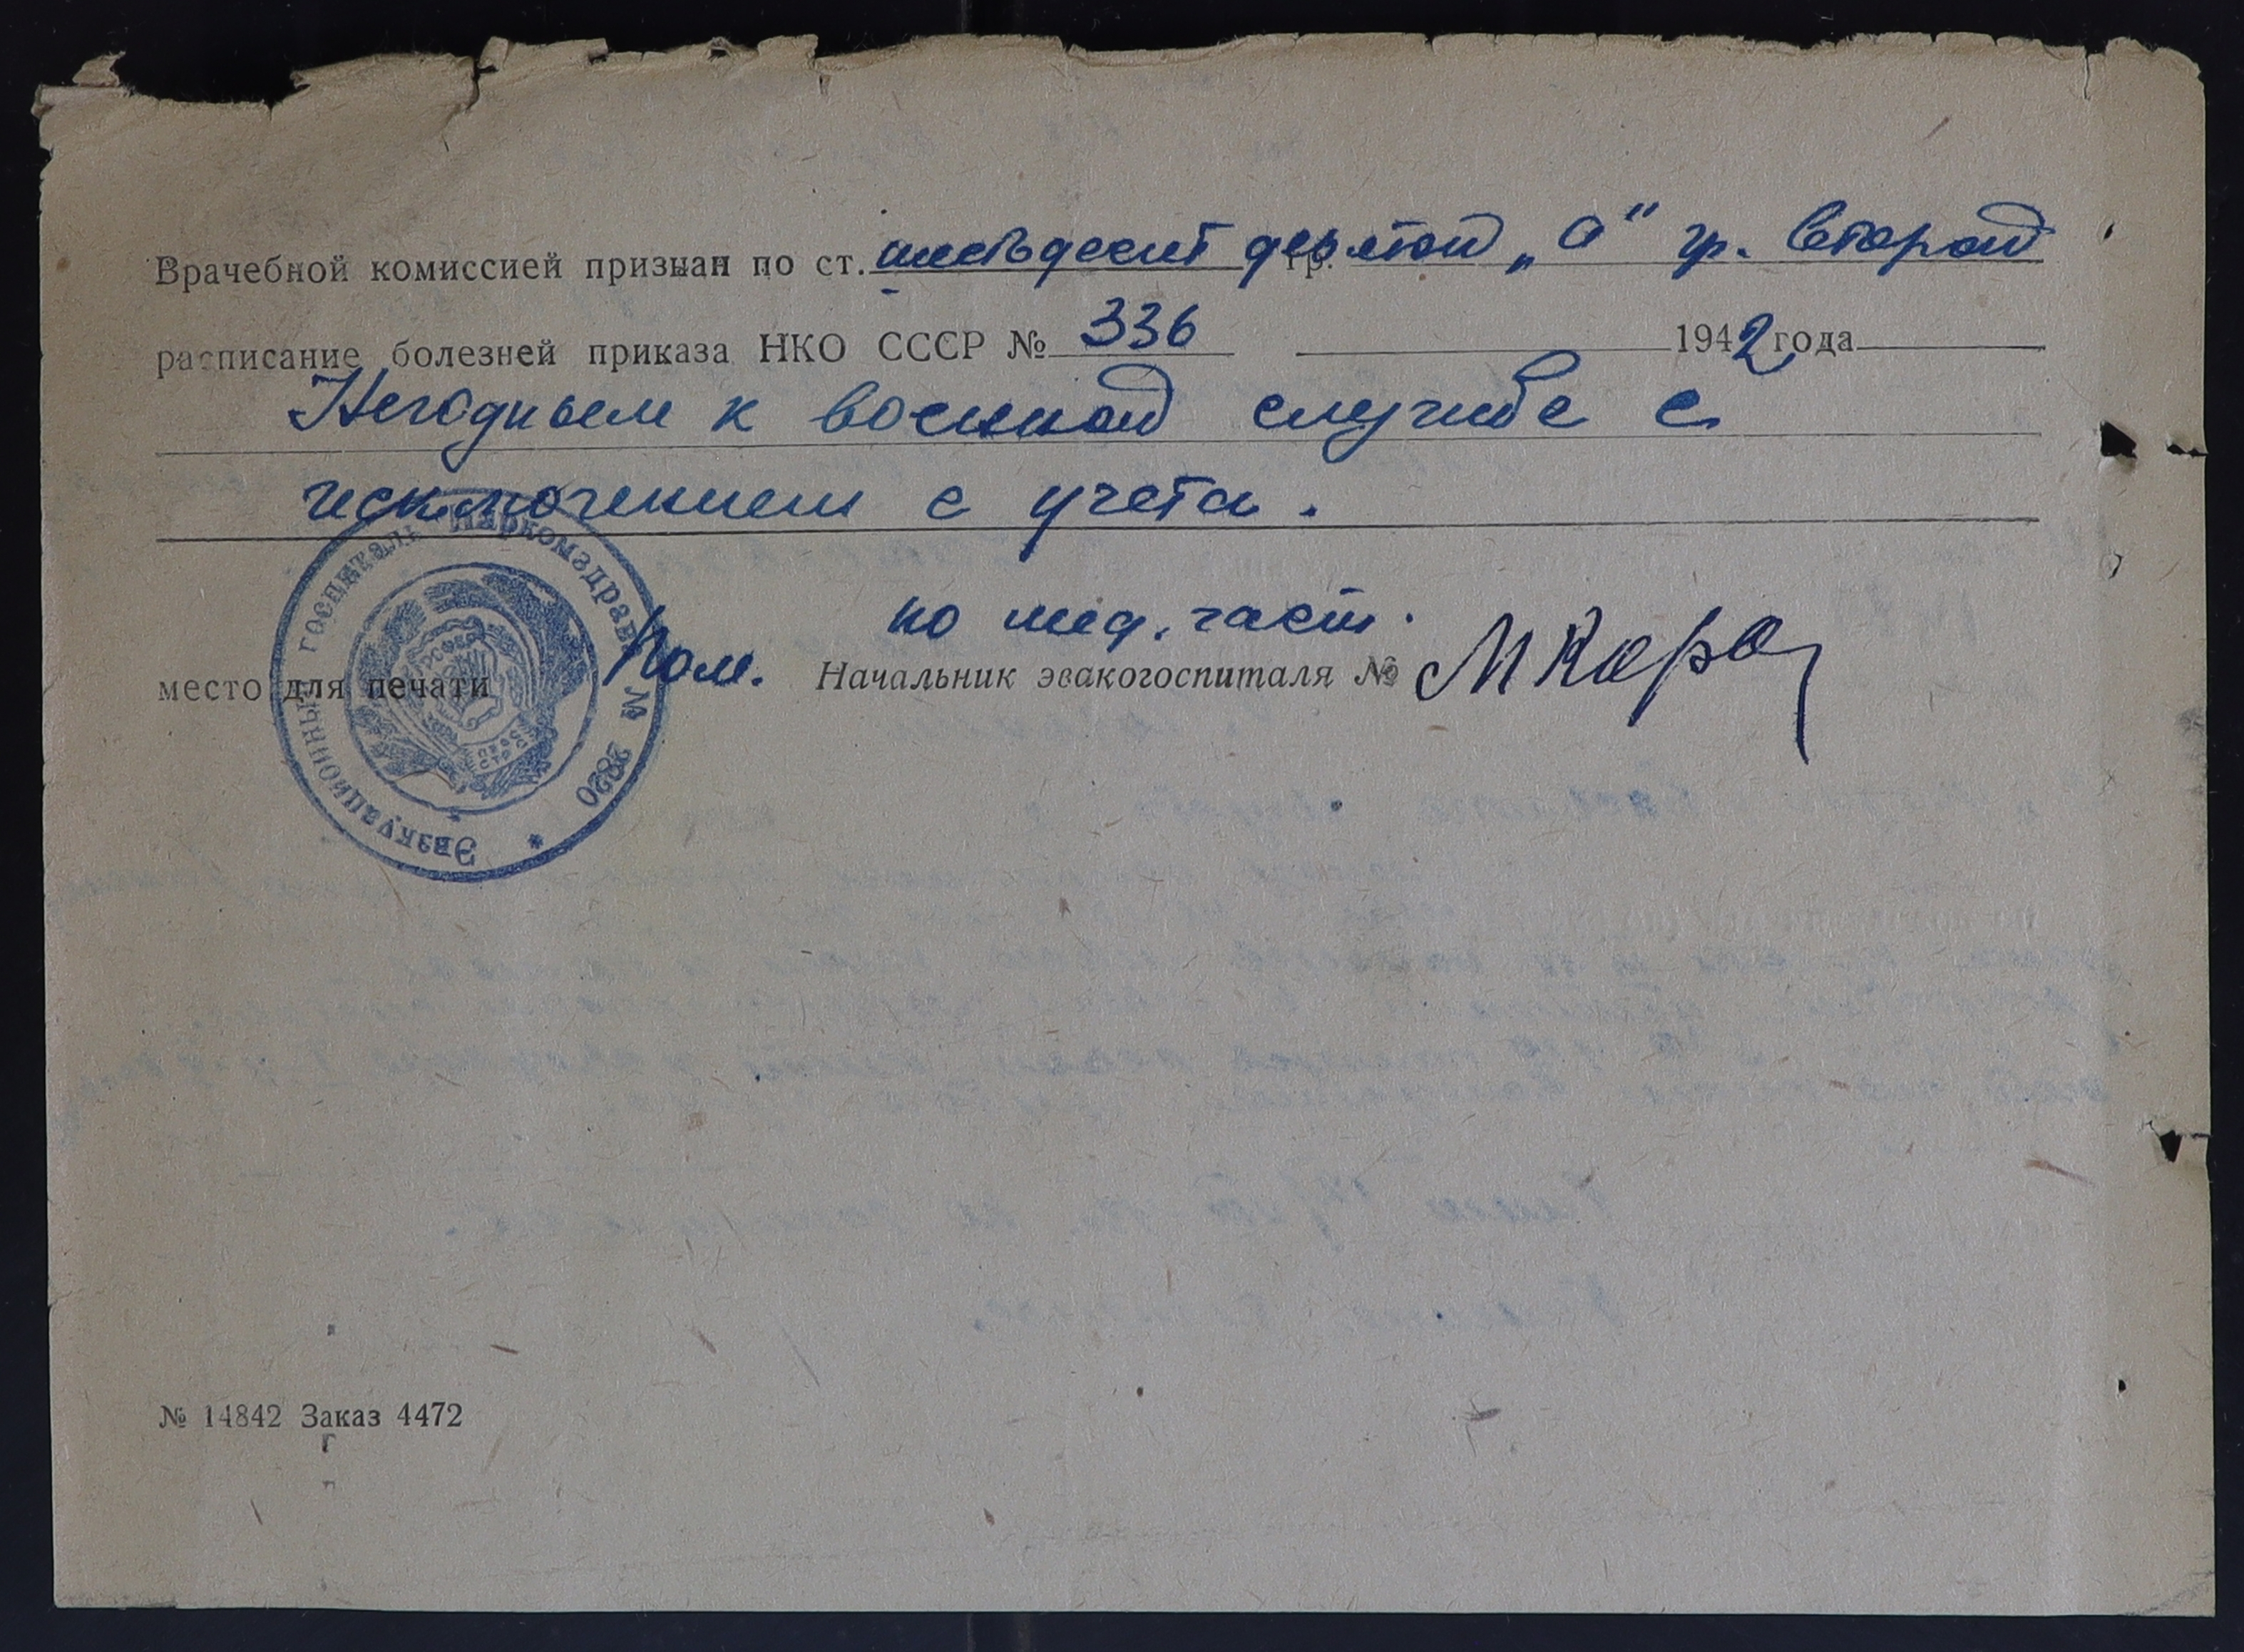 Врачебной комиссией признан по ст. шестьдесят девятой „а" гр. второй
расписание болезней приказа НКО СССР № 336 1942 года
Негодным к военной службе с
исключением с учета.
по мед. част.
место для печати Пом. Начальник эвакогоспиталя №
Эвакуационный госпиталь Наркомздрава № 2820 *
РСФСР
№ 14842 Заказ 4472